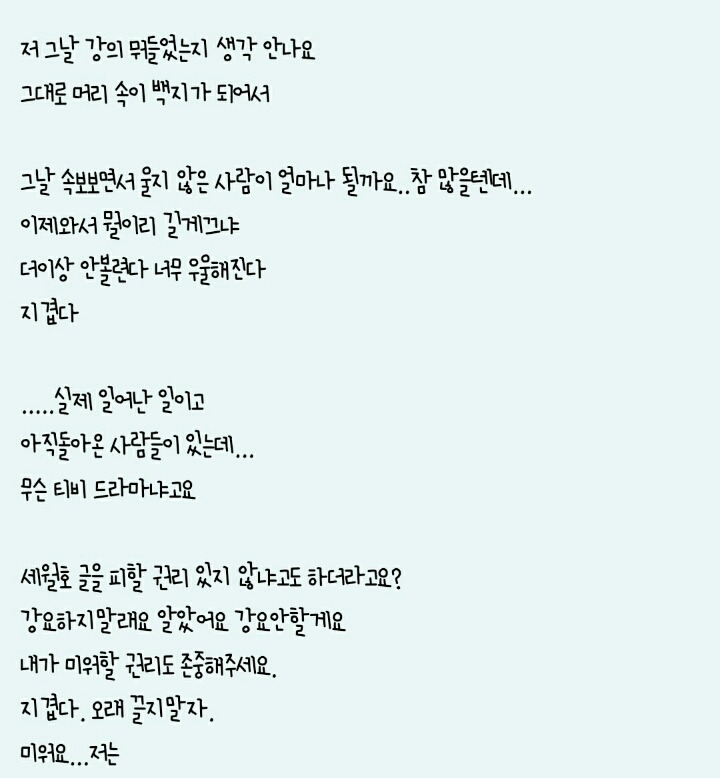 저 그날 강의 뭐들었는지 생각 안나요
그대로 머리 속이 백지가 되어서
그날 속보보면서 울지 않은 사람이 얼마나 될까요..참 많을텐데...
이제와서 뭘이리 길게끄냐
더이상 안볼련다 너무 우울해진다
지겹다
.....실제 일어난 일이고
아직돌아온 사람들이 있는데...
무슨 티비 드라마냐고요
세월호 글을 피할 권리 있지 않냐고도 하더라고요?
강요하지말래요 알았어요 강요안할게요
내가 미워할 권리도 존중해주세요.
지겹다. 오래 끌지말자.
미워요...저는